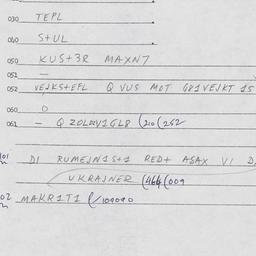 030 TEPL
040 S+UL
050 KUS+3R MAXN7
051 —
052 VEJKS+EFL Q VUS MOT G81VEJKT 15
060 O
061 — (210 (252
101 DI RUMEJN1S+1 RED+ ASAX VI D
UKRAJNER (464 (009
102 MAKR1T1 (/109090